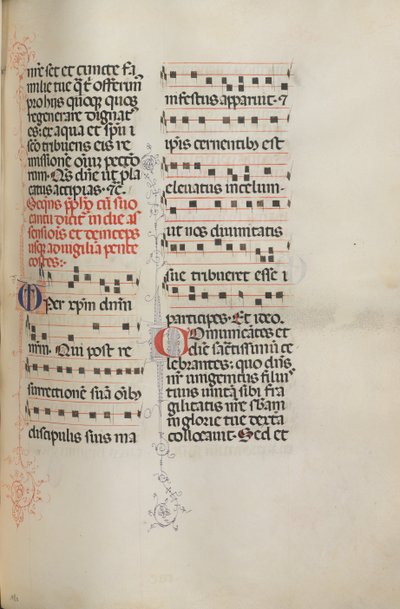 nr̄e set et cuncte fa
milie tue q̄s offerim
pro hijs quoq; quos
regenerare dignat
es: ex aqua et sp̄u s
sc̄o tribuens eis re
missionē oīuȝ pctōrū
Qs dn̄e ut pla
catus accipias · ⁊c̄.
Seq̄ns p̄fo cū suo
cantu dicit̄ in die as
sensionis et deinceps
usq; ad uigiliā pente
costes:-
Per xp̄m dn̄m
nr̄m. Qui post re
surrectionē suā oīb;
discipulis suis ma
nifestus apparuit · ⁊
ip̄is cernentib; est
eleuatus in celum-
ut nos diuinitatis
sue tribueret esse
participes · Et ideo
Comunicātes et
diē sacratissimū ce
lebrantes: quo dn̄s
nr̄ unigenitus filius
tuus unitā sibi fra
gilitatis nr̄e sbām
in glorie tue dextera
collocauit · Sed et